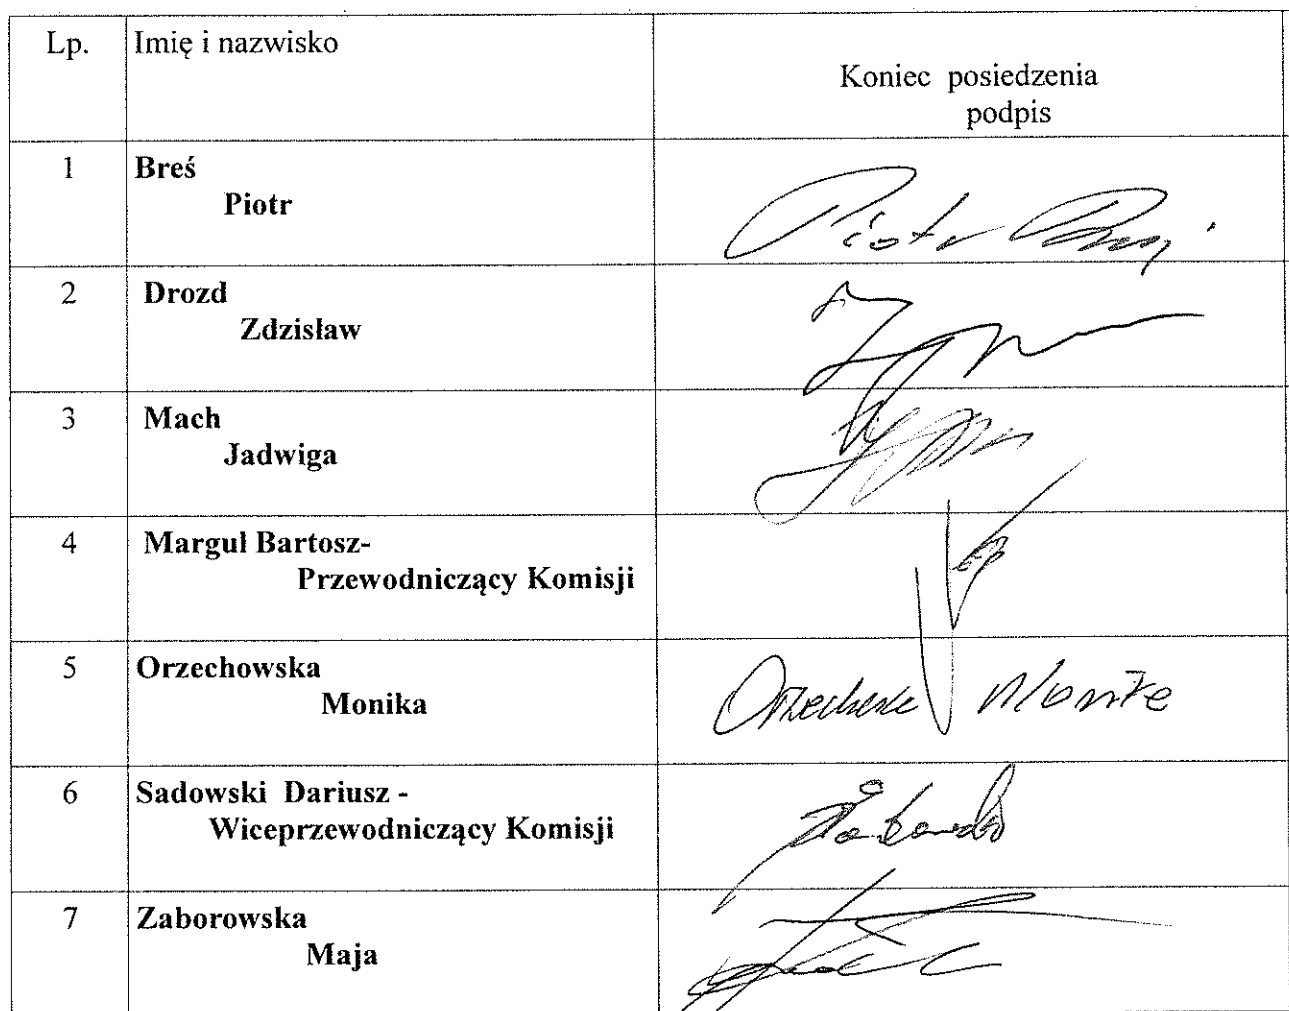 Lp. Imię i nazwisko
Koniec posiedzenia
podpis
1 Breś
Piotr
Piotr
2 Drozd
Zdzisław
3 Mach
Jadwiga
4 Margul Bartosz-
Przewodniczący Komisji
5 Orzechowska
Monika
Monika
6 Sadowski Dariusz -
Wiceprzewodniczący Komisji
7 Zaborowska
Maja